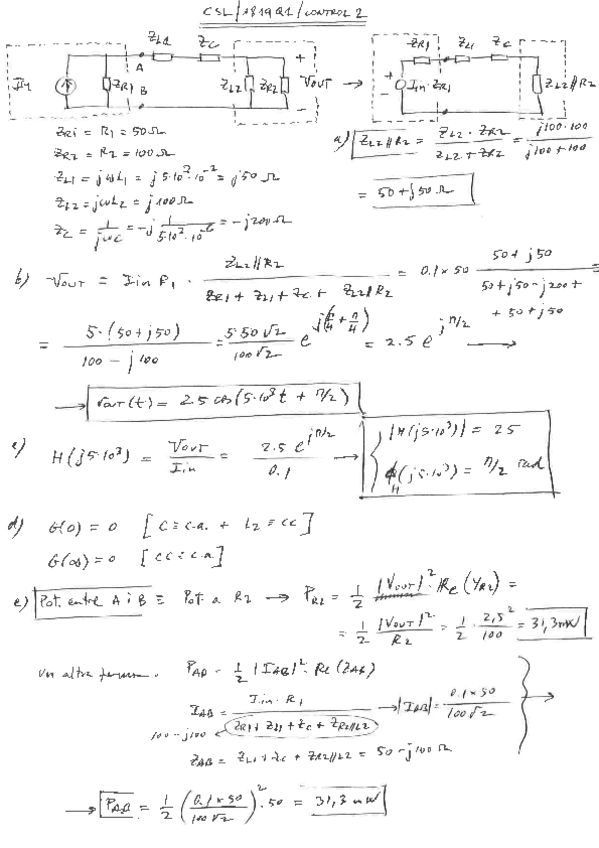 CSL/1819Q1/CONTROL 2
ZL1 ZC + ZR1 ZL1 ZC
A
Iin ZR1 ZL2 ZR2 Vout → + Iin·ZR1 ZL2//R2
B − −
ZR1 = R1 = 50Ω
ZR2 = R2 = 100Ω
ZL1 = jωL1 = j 5·10³·10⁻² = j50 Ω
ZL2 = jωL2 = j100Ω
ZC = 1/jωC = −j 1/(5·10³·10⁻⁶) = −j200Ω
a) ZL2//R2 = (ZL2 · ZR2)/(ZL2 + ZR2) = (j100·100)/(j100+100)
= 50+j50 Ω
b) Vout = Iin R1 · ZL2//R2/(ZR1 + ZL1 + ZC + ZL2//R2) = 0.1×50 (50+j50)/(50+j50−j200+
+50+j50) =
= 5·(50+j50)/(100−j100) = (5·50√2)/(100√2) e^j(π/4+π/4) = 2.5 e^jπ/2 →
→ Vout(t) = 2.5 cos(5·10³t + π/2)
c) H(j5·10³) = Vout/Iin = 2.5 e^jπ/2/0.1 → |H(j5·10³)| = 25
ϕH(j5·10³) = π/2 rad
d) G(0) = 0 [C ≡ c.a. + L2 ≡ cc]
G(∞) = 0 [
e) Pot. entre A i B ≡ Pot. a R2 → PR2 = 1/2 |Vout|²·Re(YR2) =
= 1/2 |Vout|²/R2 = 1/2 · 2,5²/100 = 31,3mW
Un altra forma. PAB = 1/2 |IAB|²·Re(ZAB)
IAB = Iin·R1/(ZR1+ZL1+ZC+ZR2//L2) → |IAB| = 0.1×50/100√2 →
100−j100
ZAB = ZL1+ZC+ZR2//L2 = 50−j100Ω
→ PAB = 1/2 (0.1×50/100√2)²·50 = 31,3 mW